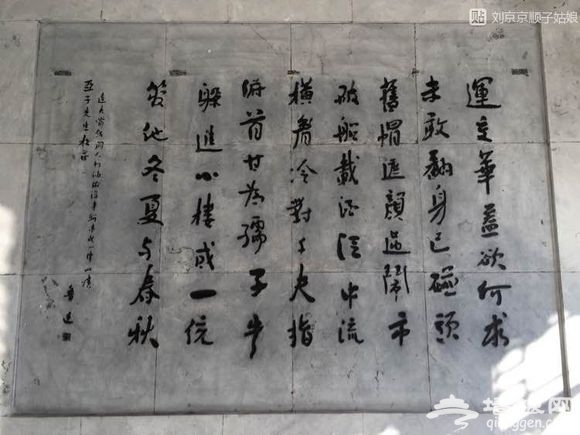 運交華蓋欲何求
未敢翻身已碰頭
舊帽遮顏過鬧市
破船載酒泛中流
橫眉冷對千夫指
俯首甘為孺子牛
躲進小樓成一統
管他冬夏与春秋
達夫賞飯閒人打油偷得半聯湊成一律以請
亞子先生教正
魯迅
贴 刘京京顺子姑娘
墙根网
qianggen.com